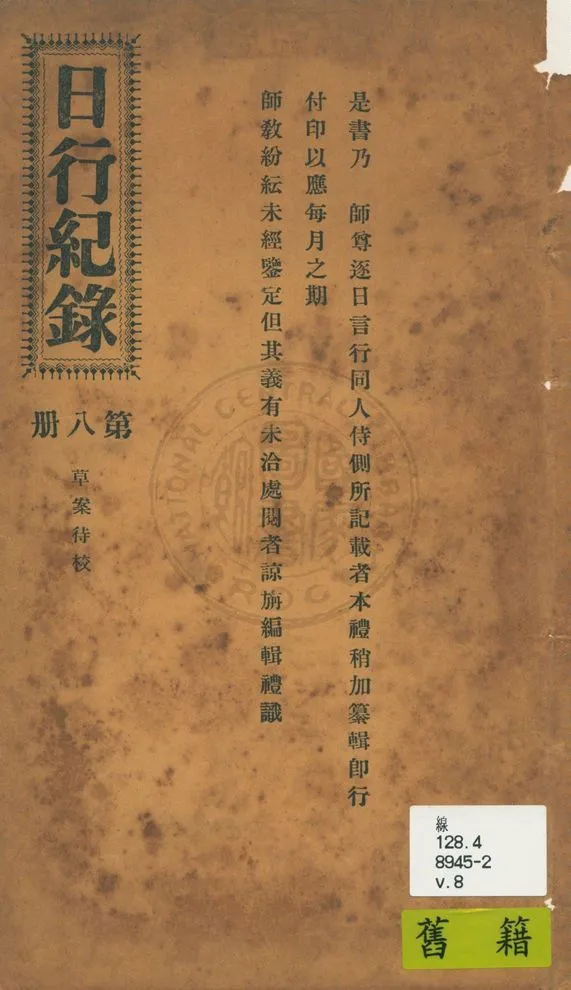 日行紀錄
第八册
草案待校
是書乃　師尊逐日言行同人侍側所記載者本禮稍加纂輯即行
付印以應每月之期
師教紛紜未經鑒定但其義有未洽處閱者諒旃編輯禮識
線
128.4
8945-2
v.8
舊籍
NATIONAL CENTRAL LIBRARY
R.O.C.